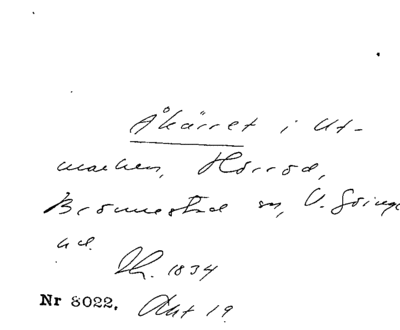 Åkärret i Ut-
marken, Hörröd,
Brönnestad sn, V. Göinge
hd.
1834
Nr 8022. Akt 19